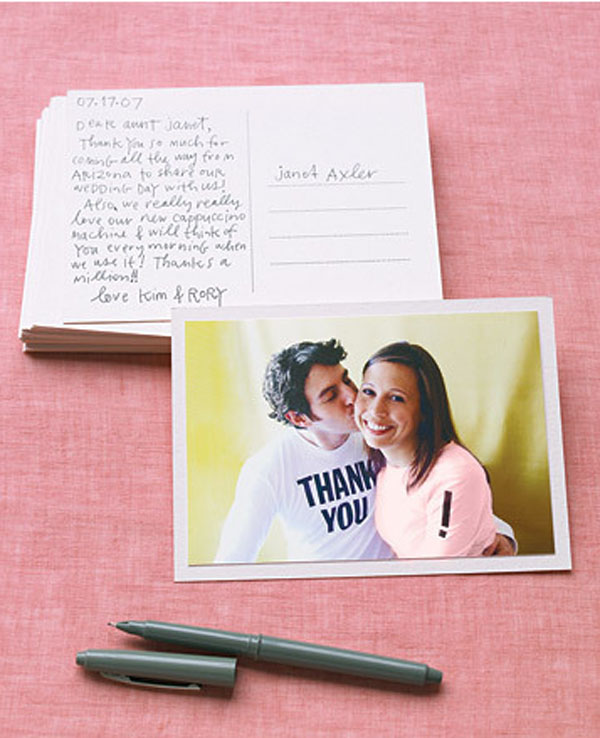 07.17.07
Dear aunt janet,
Thank you so much for
coming all the way from
ARIZONA to share our
wedding Day with us!
Also, we really really
love our new cappuccino
machine & will think of
you every morning when
we use it! Thanks a
million!!
love Kim & RORY
janet Axler
THANK
YOU
!